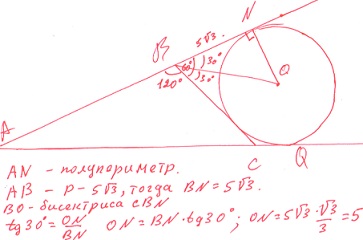 N
5√3
B
30°
60°
30°
120°
O
A
C
Q
AN - полупериметр.
AB - P-5√3, тогда BN=5√3.
BO-бисектриса CBN
tg30°=ON/BN ON=BN·tg30°; ON=5√3·√3/3=5